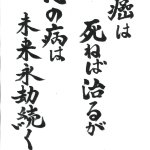 癌は
死ねば治るが
の病は
未来永劫続く